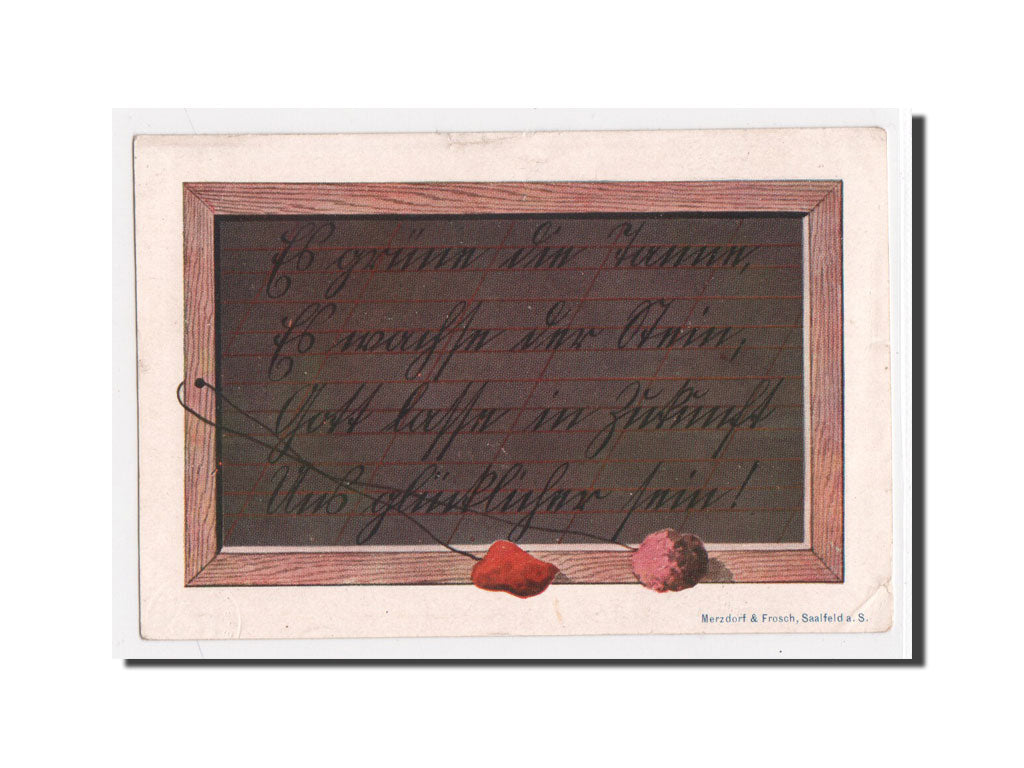 Es grüne die Tanne,
Es wachse der Stein,
Gott lasse in Zukunft
Uns glücklicher sein!
Merzdorf & Frosch, Saalfeld a. S.